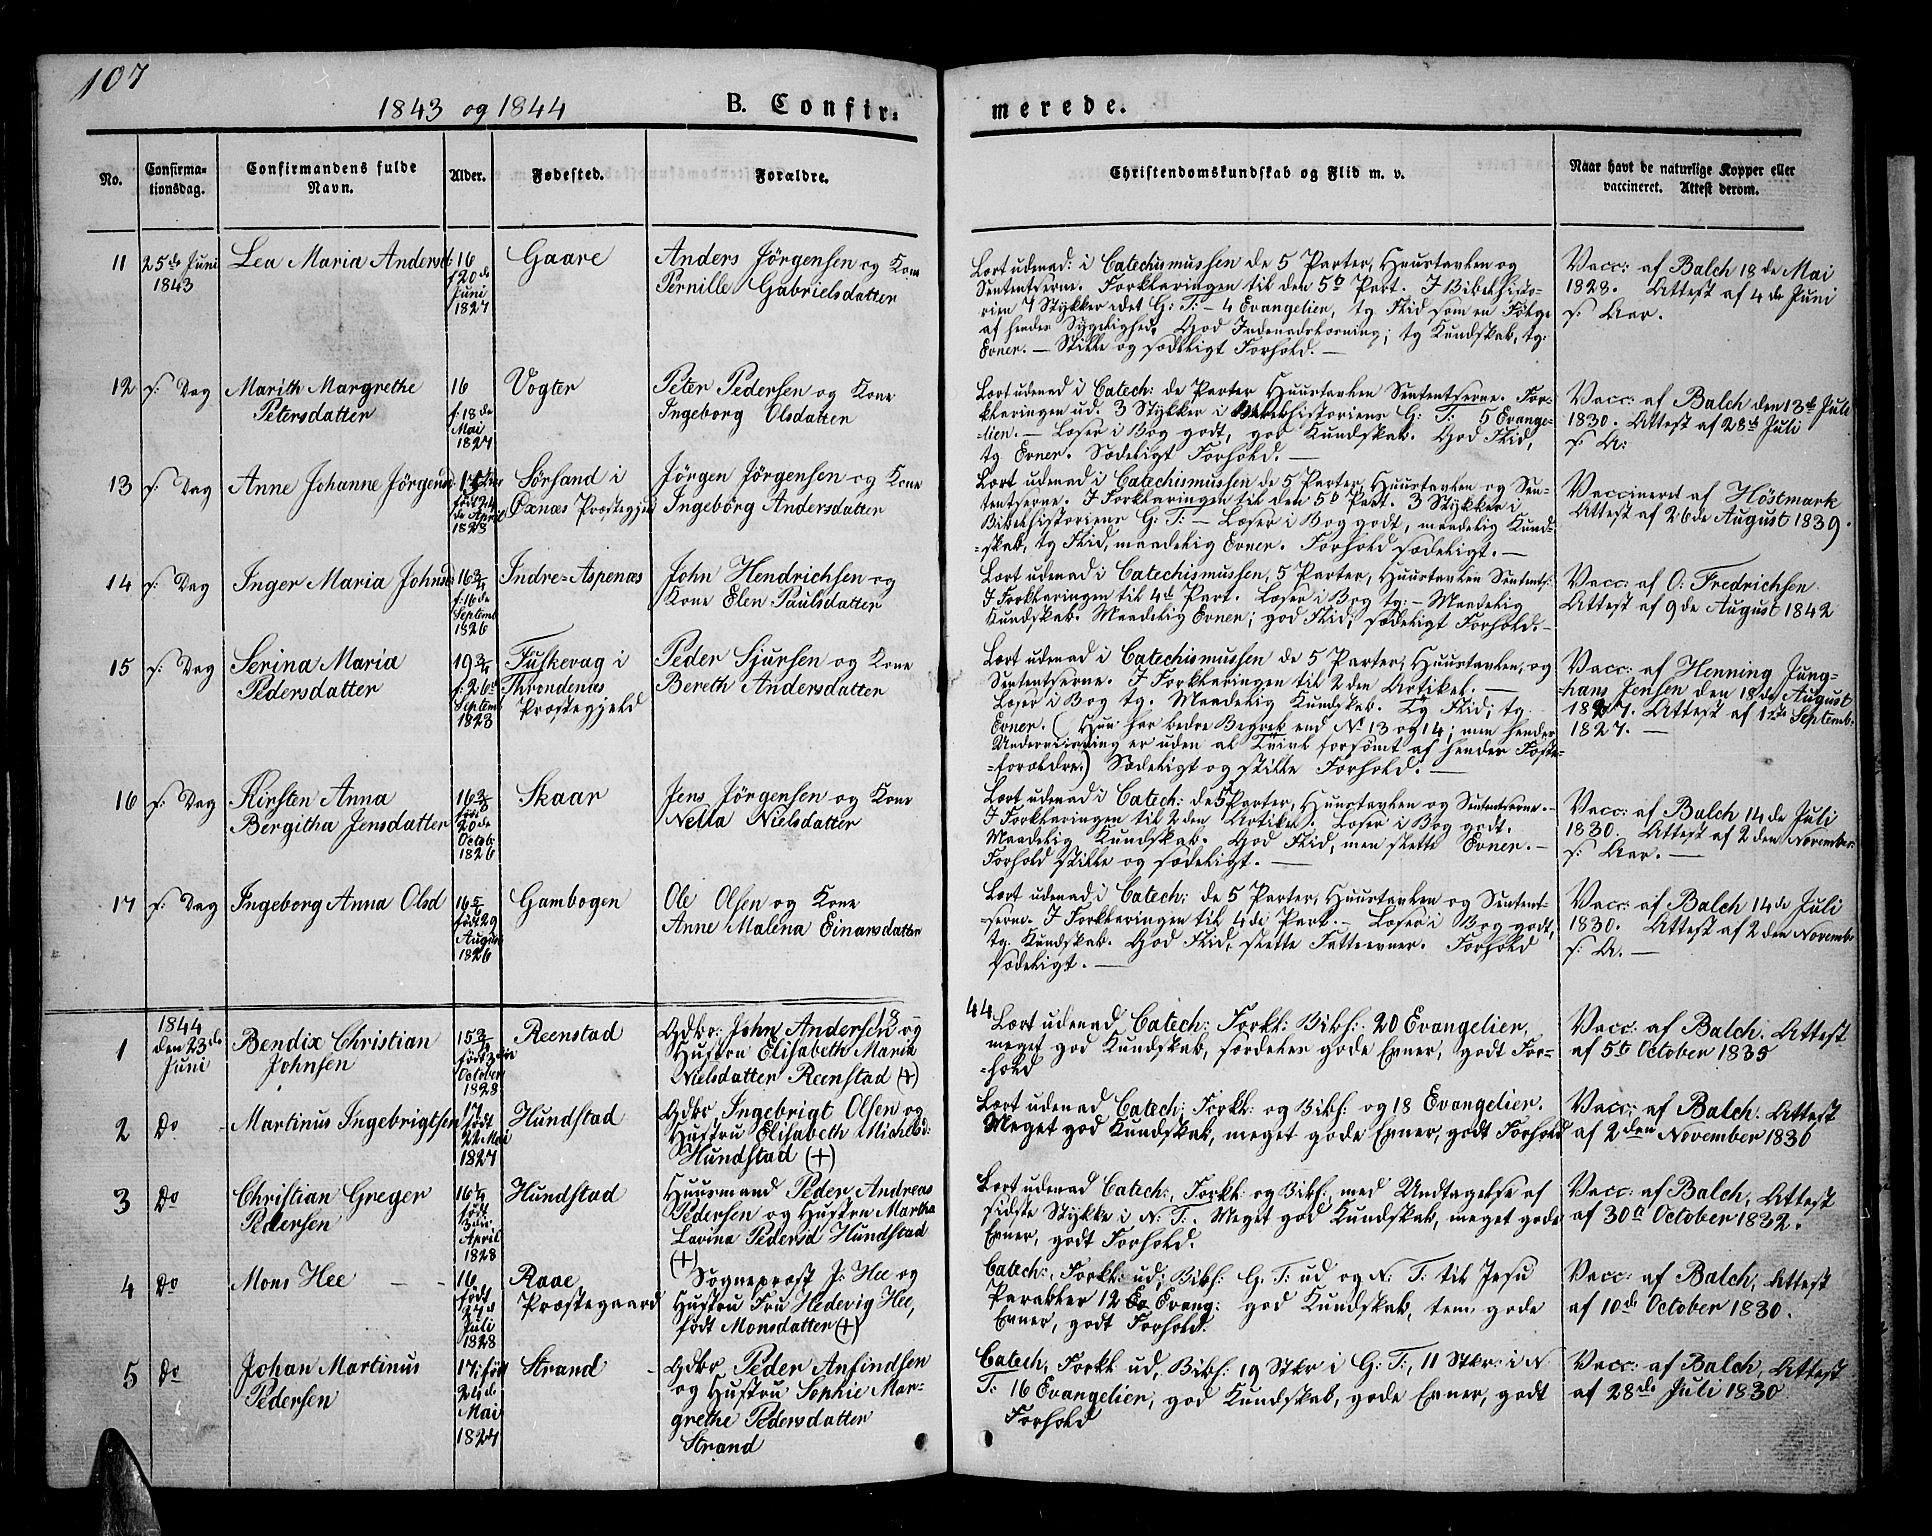 107
1843 og 1844
B. Confir-
merede.
No.
Confirma-
tionsdag.
Confirmandens fulde
Navn.
Alder.
Fødested.
Forældre.
Christendomskundskab og Flid m. v.
Naar havt de naturlige Kopper eller
vaccineret. Attest derom.
11
25de Juni
1843
Lea Maria Andersd:
16
f 20de
Juni
1827
Gaare
Anders Jørgensen og Kone
Pernille Gabrielsdatter
Lært udenad: i Catechismussen de 5 Parter, Huustavlen og
Sententserne. Forklaringen til den 5te Part. I Bibelhisto-
rien 7 Stykker idet G: T: - 4 Evangelier, tg Flid som en Følge
af hendes Sygelighed. God Indenadslæsning; tg Kundskab, tg:
Evner. - Stille og sædeligt Forhold. -
Vacc: af Balch 18de Mai
1828. Attest af 4de Juni
s: Aar.
12
s: Dag
Marith Margrethe
Petersdatter
16
f: 18de
Mai
1827
Vogter
Peter Pedersen og Kone
Ingeborg Olsdatter
Lært udenad i Catech: de Parter Huustavlen Sententserne. For-
klaringen ud. 3 Stykker i Bibelhistoriens G: T: 5 Evange-
lier. - Læser i Bog godt, god Kundskab. God Flid,
tg Evner. Sædeligt Forhold. -
Vacc: af Balch den 13de Juli
1830. Attest af 28de Juli
s: A:
13
s: Dag
Anne Johanne Jørgensd:
født 24
de April
1828
Sørsand i
Øxnæs Præstegjeld
Jørgen Jørgensen og Kone
Ingebørg Andersdatter
Lært udenad i Catechismussen de 5 Parter, Huustavlen og Sen-
tentserne. I Forklaringen til den 5te Part. 3 Stykker i
Bibelhistoriens G: T: - Læser i Bog godt, maadelig Kund-
-skab, tg Flid, maadelig Evner. Forhold sædeligt. -
Vaccineret af Høstmark
Attest af 26de August 1839.
14
s: Dag
Inger Maria Johnsd:
16 3/4
f: 16de
Septemb
1826
Indre-Aspenæs
John Hendrichsen og
Kone Elen Paulsdatter
Lært udenad i Catechismussen, 5 Parter, Huustavlen Sentents:
I Forklaringen til 4de Part. Læser i Bog tg: - Maadelig
Kundskab. Maadelig Evner; god Flid; sædeligt Forhold. -
Vacc: af O: Fredrichsen
Attest af 9de August 1842
15
s: Dag
Serina Maria
Pedersdatter
19 3/4
f: 26de
Septemb
1823
Fuskevag i
Throndenæs
Præstegjeld
Peder Sjursen og Kone
Bereth Andersdatter
Lært udenad i Catechismussen de 5 Parter, Huustavlen, og
Sententserne. I Forklaringen til 2den Artikel. -
Læser i Bog tg. Maadelig Kundskab. Tg Flid, tg.
Evner. (Hun har bedre Begreb end N 13 og 14; men hendes
Underviisning er uden al Tvivl forsømt af hendes Foster-
=forældre.) Sædeligt og stille Forhold. -
Vacc: af Henning Jung-
hans Jensen den 18de August
1827. Attest af 1ste Septemb.
1827. -
16
s: Dag
Kirsten Anna
Bergitha Jensdatter
født
20de
Octob
1826
Skaar
Jens Jørgensen og Kone
Nella Nielsdatter
Lært udenad i Catech: de 5 Parter, Huustavlen og Sententserne. -
I Forklaringen til 2den Artikel. Læser i Bog godt.
Maadelig Kundskab. God Flid, men slette Evner. -
Forhold stille og sædeligt. -
Vacc: af Balch 14de Juli
1830. Attest af 2den November
s: Aar. -
17
s: Dag
Ingeborg Anna Olsd
16 5/6
født 29
August
1826
Gambogen
Ole Olsen og Kone
Anne Malena Einarsdatter
Lært udenad i Catech: de 5 Parter, Huustavlen og Sentent-
-serne. I Forklaringen til 4de Part. - Læser i Bog godt,
tg. Kundskab. God Flid, slette Fatteevner. Forhold
sædeligt. -
Vacc: af Balch 14de Juli
1830. Attest af 2den Novemb
s: A. -
18
44
1
1844
den 23de
Juni
Bendix Christian
Johnsen
15 3/4
født 3die
October
1828
Reenstad
Gdbr: John Andersen og
Hustru Elisabeth Maria
Nielsdatter Reenstad (+)
Lært udenad Catech: Forkl: Bibh: 20 Evangelier,
meget god Kundskab, særdeles gode Evner, godt For-
-hold
Vacc: af Balch. Attest
af 5te October 1835
2
Do
Martinus Ingebrigtsen
17
født
22 Mai
1827
Hundstad
Gdbr. Ingebrigt Olsen og
Hustru Elisabeth Michelsd:
Hundstad (+)
Lært udenad Catech; Forkl: og Bibh: og 18 Evangelier.
Meget god Kundskab, meget gode Evner, godt Forhold
Vacc: af Balch. Attest
af 2den November 1836
3
Do
Christian Greger
Pedersen
16 1/4
født
3die
April
1828
Hundstad
Huusmand Peder Andreas
Pedersen og Hustru Martha
Lavina Pedersd Hundstad
(+)
Lært udenad Catech:, Forkl: og Bibh:, med Undtagelse af
sidste Stykke i N: T:. Meget god Kundskab, meget gode
Evner, godt Forhold.
Vacc: af Balch, Attest
af 30te October 1832.
4
Do
Mons Hee
16
født
27de
Juli
1828
Raae
Præstegaard
Sogneprost J: Hee og
Hustru Fru Hedevig Hee,
født Monsdatter (+)
Catech:, Forkl: ud; Bibh: G. T: ud og N: T: til Jesu
Parabler 12 Evang: god Kundskab, tem gode
Evner, godt Forhold.
Vacc: af Balch, Attest
af 10de October 1830.
5
Do
Johan Martinus
Pedersen
17: født
24de
Mai
1827
Strand
Gdbr Peder Anfindsen
og Hustru Sophie Mar-
grethe Pedersdatter
Strand
Catech, Forkl ud, Bibh: 19 Stkr i G: T:, 11 Stkr: i N
T: 16 Evangelier, god Kundskab, gode Evner, godt
Forhold
Vacc: af Balch, Attest
af 28de Juli 1830